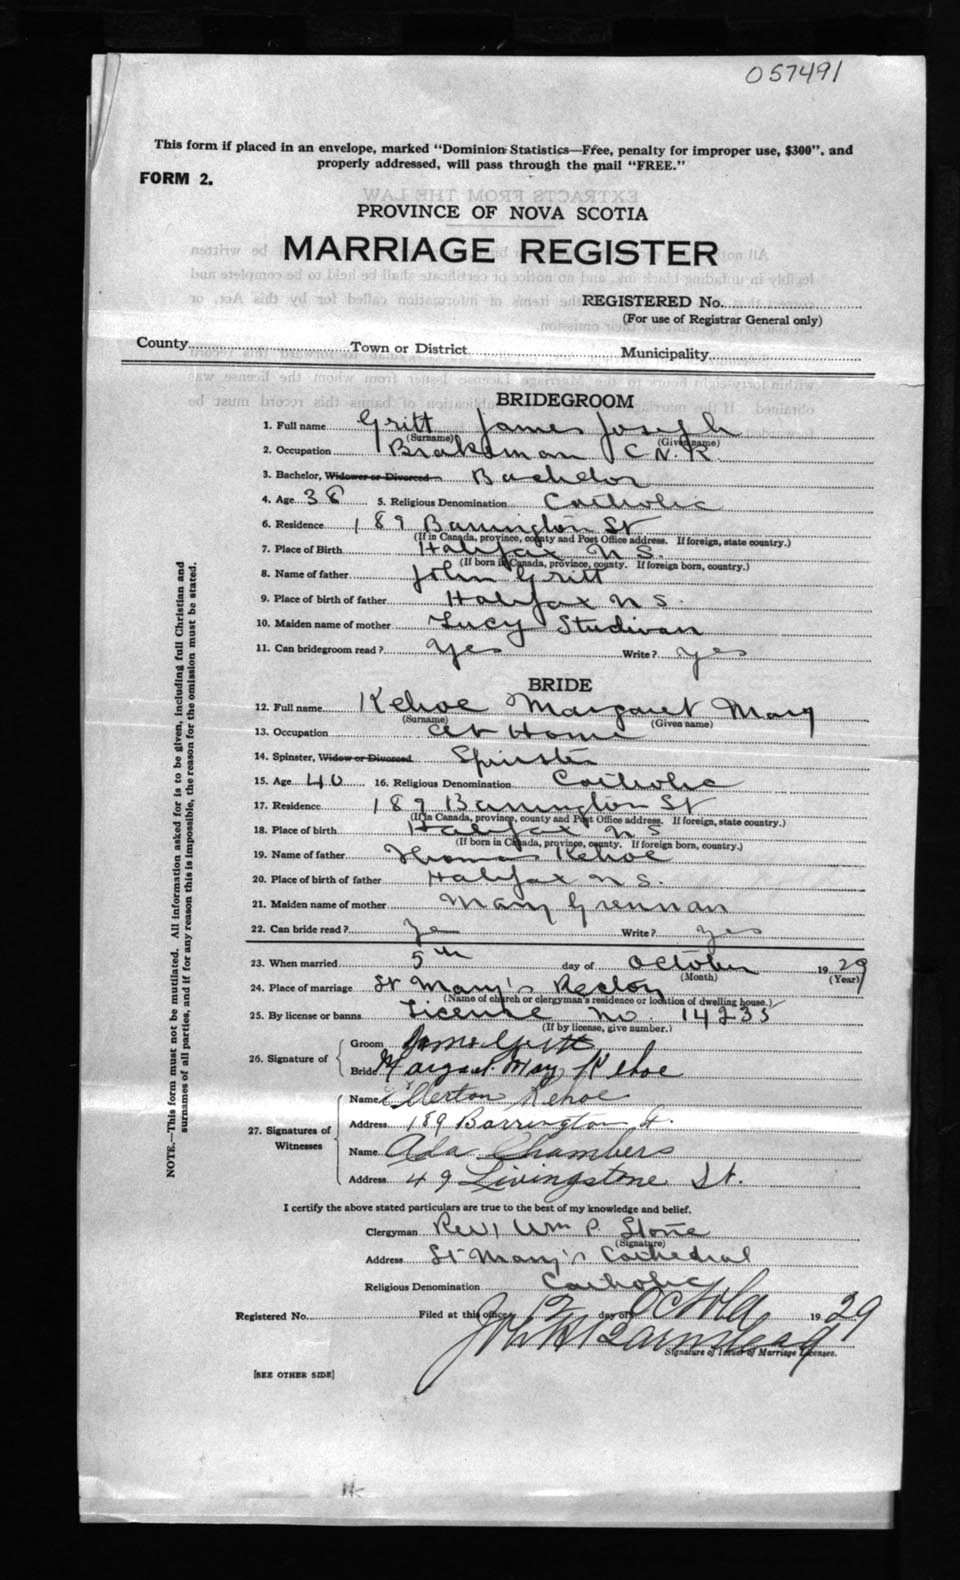 057491
This form if placed in an envelope, marked "Dominion Statistics—Free, penalty for improper use, $300", and
properly addressed, will pass through the mail "FREE."
FORM 2.
PROVINCE OF NOVA SCOTIA
MARRIAGE REGISTER
REGISTERED No.
(For use of Registrar General only)
County Town or District Municipality
BRIDEGROOM
1. Full name Gritt James Joseph
(Surname) (Given name)
2. Occupation Brakeman C.N.R.
3. Bachelor, Widower or Divorced Bachelor
4. Age 38 5. Religious Denomination Catholic
6. Residence 189 Barrington St
(If in Canada, province, county and Post Office address. If foreign, state country.)
7. Place of Birth Halifax N S.
(If born in Canada, province, county. If foreign born, country.)
8. Name of father John Gritt
9. Place of birth of father Halifax N S.
10. Maiden name of mother Lucy
11. Can bridegroom read? Yes Write? yes
BRIDE
12. Full name Kehoe Margaret Mary
(Surname) (Given name)
13. Occupation At Home
14. Spinster, Widow or Divorced Spinster
15. Age 40 16. Religious Denomination Catholic
17. Residence 189 Barrington St
(If in Canada, province, county and Post Office address. If foreign, state country.)
18. Place of birth Halifax N S
(If born in Canada, province, county. If foreign born, country.)
19. Name of father Thomas Kehoe
20. Place of birth of father Halifax N S.
21. Maiden name of mother Mary Grennan
22. Can bride read? Write? yes
23. When married 5th day of October 1929
(Month) (Year)
24. Place of marriage St Mary's
(Name of church or clergyman's residence or location of dwelling house.)
25. By license or banns License No. 14235
(If by license, give number.)
26. Signature of
Groom James Gritt
Bride Margaret May Kehoe
27. Signatures of Witnesses
Name Ellerton Kehoe
Address 189 Barrington St.
Name Ada Chambers
Address 49 Livingstone St.
I certify the above stated particulars are true to the best of my knowledge and belief.
Clergyman Rev, Wm P. Stone
(Signature)
Address St Mary's Cathedral
Religious Denomination Catholic
Registered No. Filed at this office day of 1929
Signature of Issuer of Marriage Licenses.
[SEE OTHER SIDE]
NOTE.—This form must not be mutilated. All information asked for is to be given, including full Christian and
surnames of all parties, and if for any reason this is impossible, the reason for the omission must be stated.